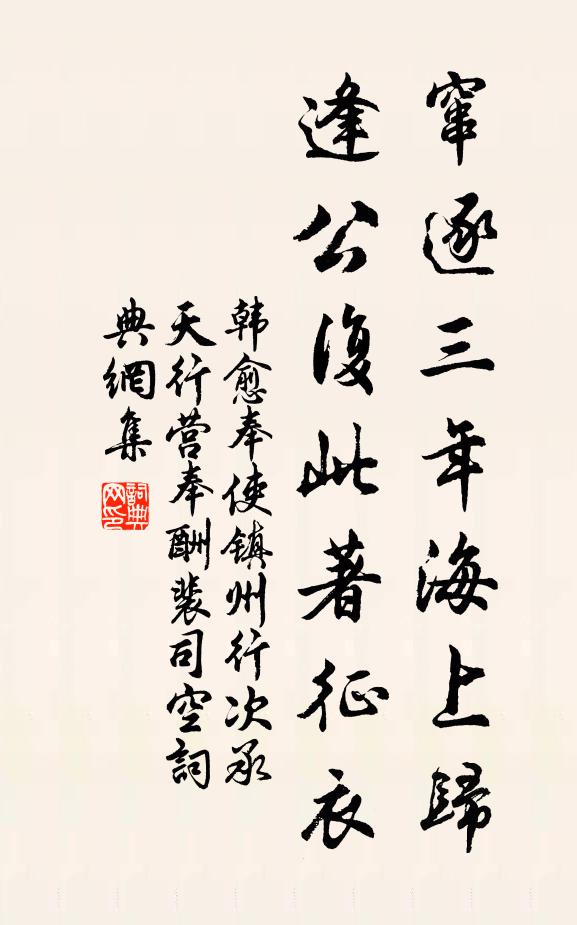 窜逐三年海上歸
逢公復此著征衣
韩愈奉使镇州行次承
天行营奉酬裴司空詞
典網集
詞典網印